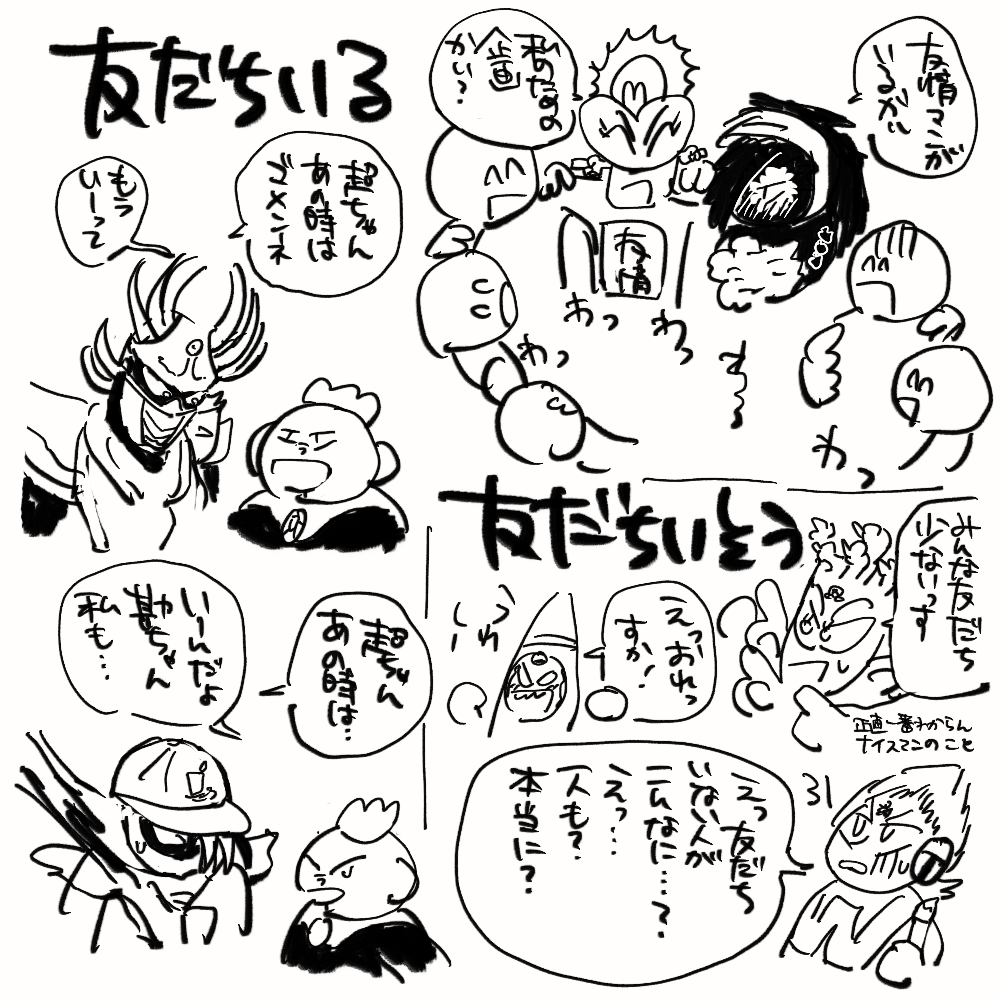 友だちいる
友情マンが
いるがい
私あたりの
企画
かい?
友情
わっ
わっ
わっ
わっ
超ちゃん
あの時は
ゴメンネ
もう
いーって
超ちゃん
あの時は…
いーんだよ
勘ちゃん
私も…
友だちいそう
みんな友だち
少ないっす
えっおれっ
すか!
正直一番わからん
ナイスマンのこと
えっ友だち
いない人が
こんなに…?
えっ…
一人も?
本当に?